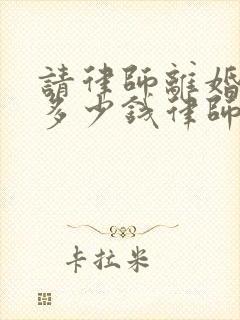 請律師離婚
多少錢律師
卡拉米